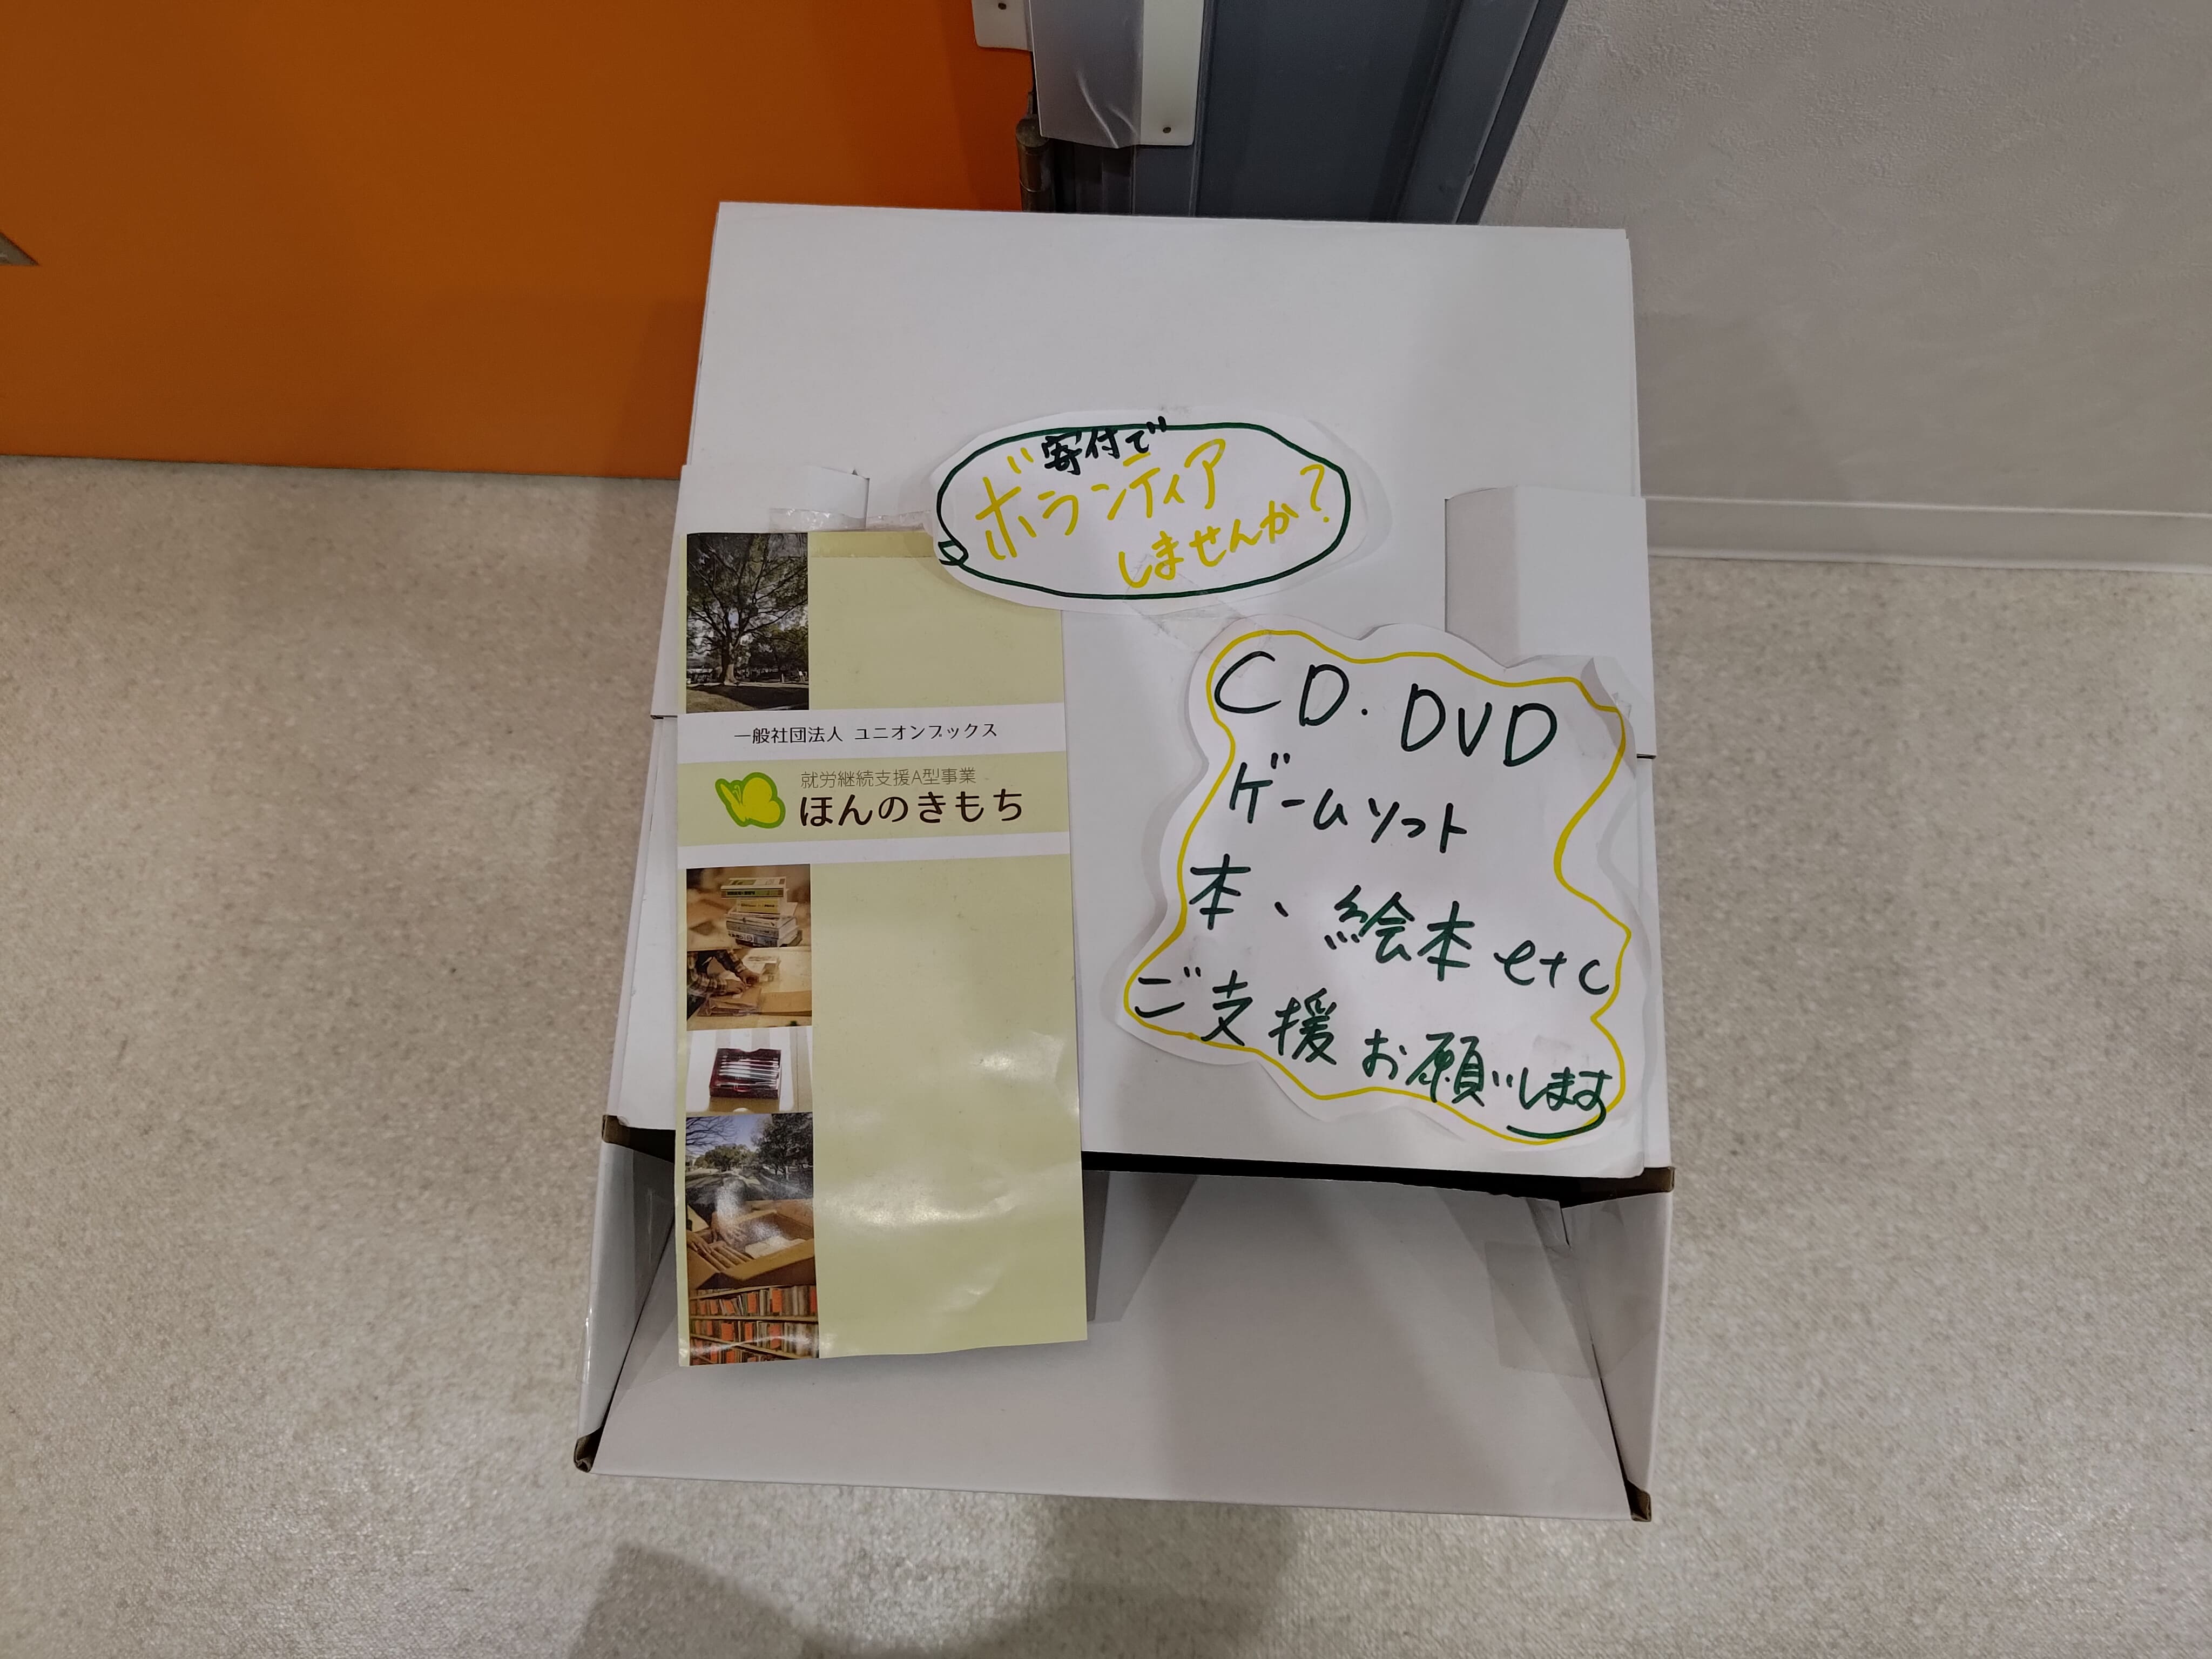 寄付で
ボランティア
しませんか?
一般社団法人 ユニオンブックス
就労継続支援A型事業
ほんのきもち
CD.DVD
ゲームソフト
本、絵本etc
ご支援お願いします